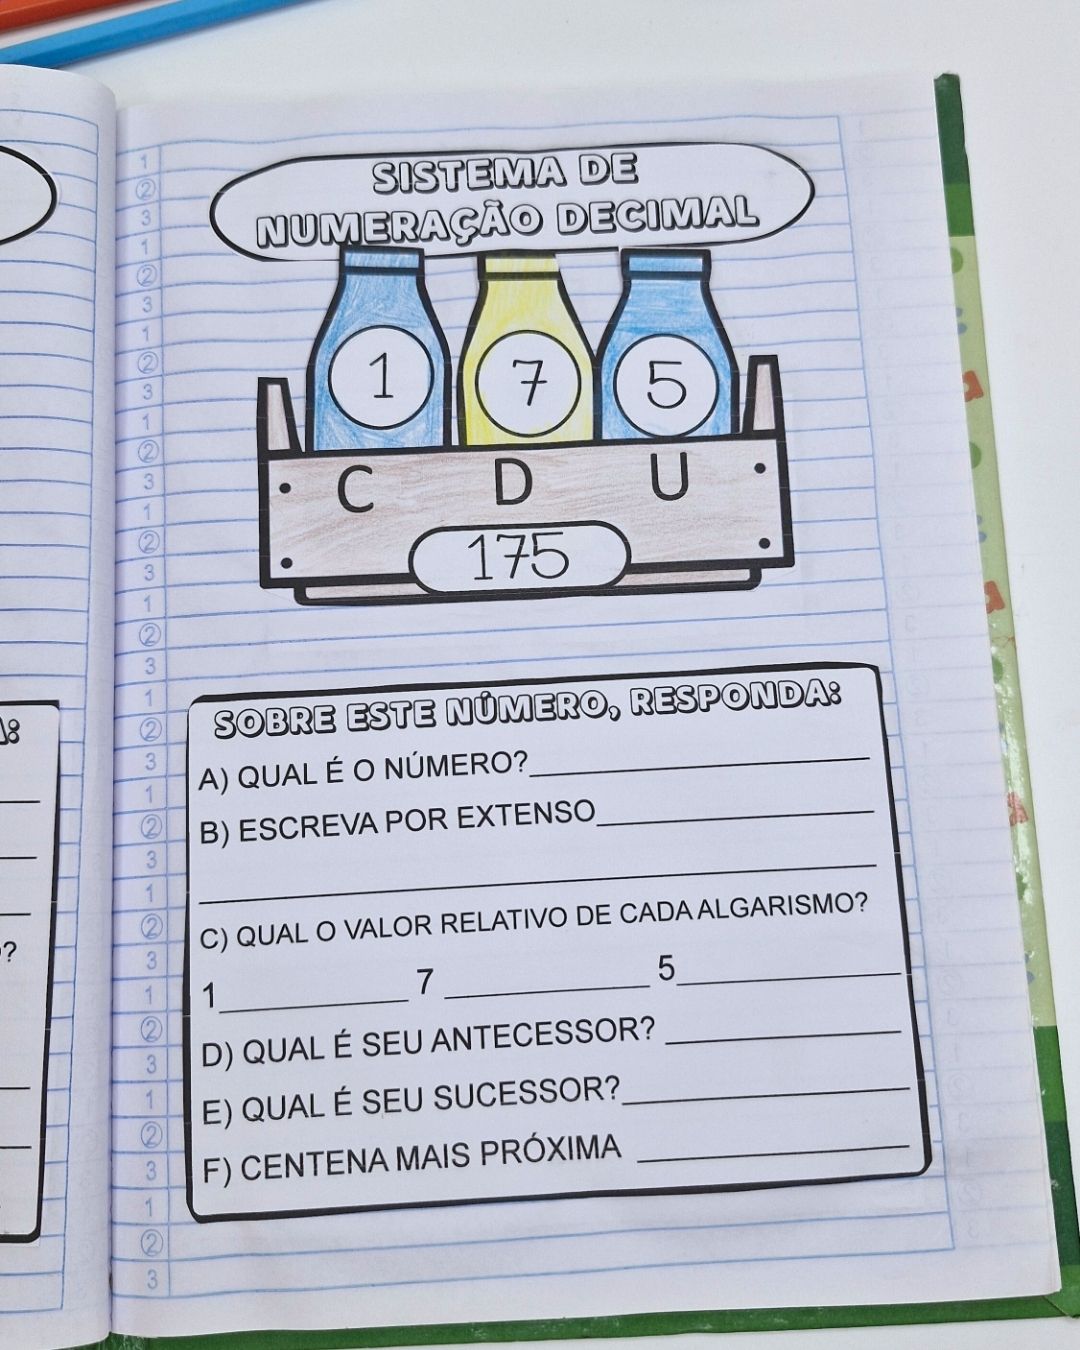 SISTEMA DE
NUMERAÇÃO DECIMAL
1 7 5
C D U
175
SOBRE ESTE NÚMERO, RESPONDA:
A) QUAL É O NÚMERO?
B) ESCREVA POR EXTENSO
C) QUAL O VALOR RELATIVO DE CADA ALGARISMO?
1 7 5
D) QUAL É SEU ANTECESSOR?
E) QUAL É SEU SUCESSOR?
F) CENTENA MAIS PRÓXIMA
1
2
3
1
2
3
1
2
3
1
2
3
1
2
3
1
2
3
1
2
3
1
2
3
1
2
3
1
2
3
1
2
3
1
2
3
1
2
3